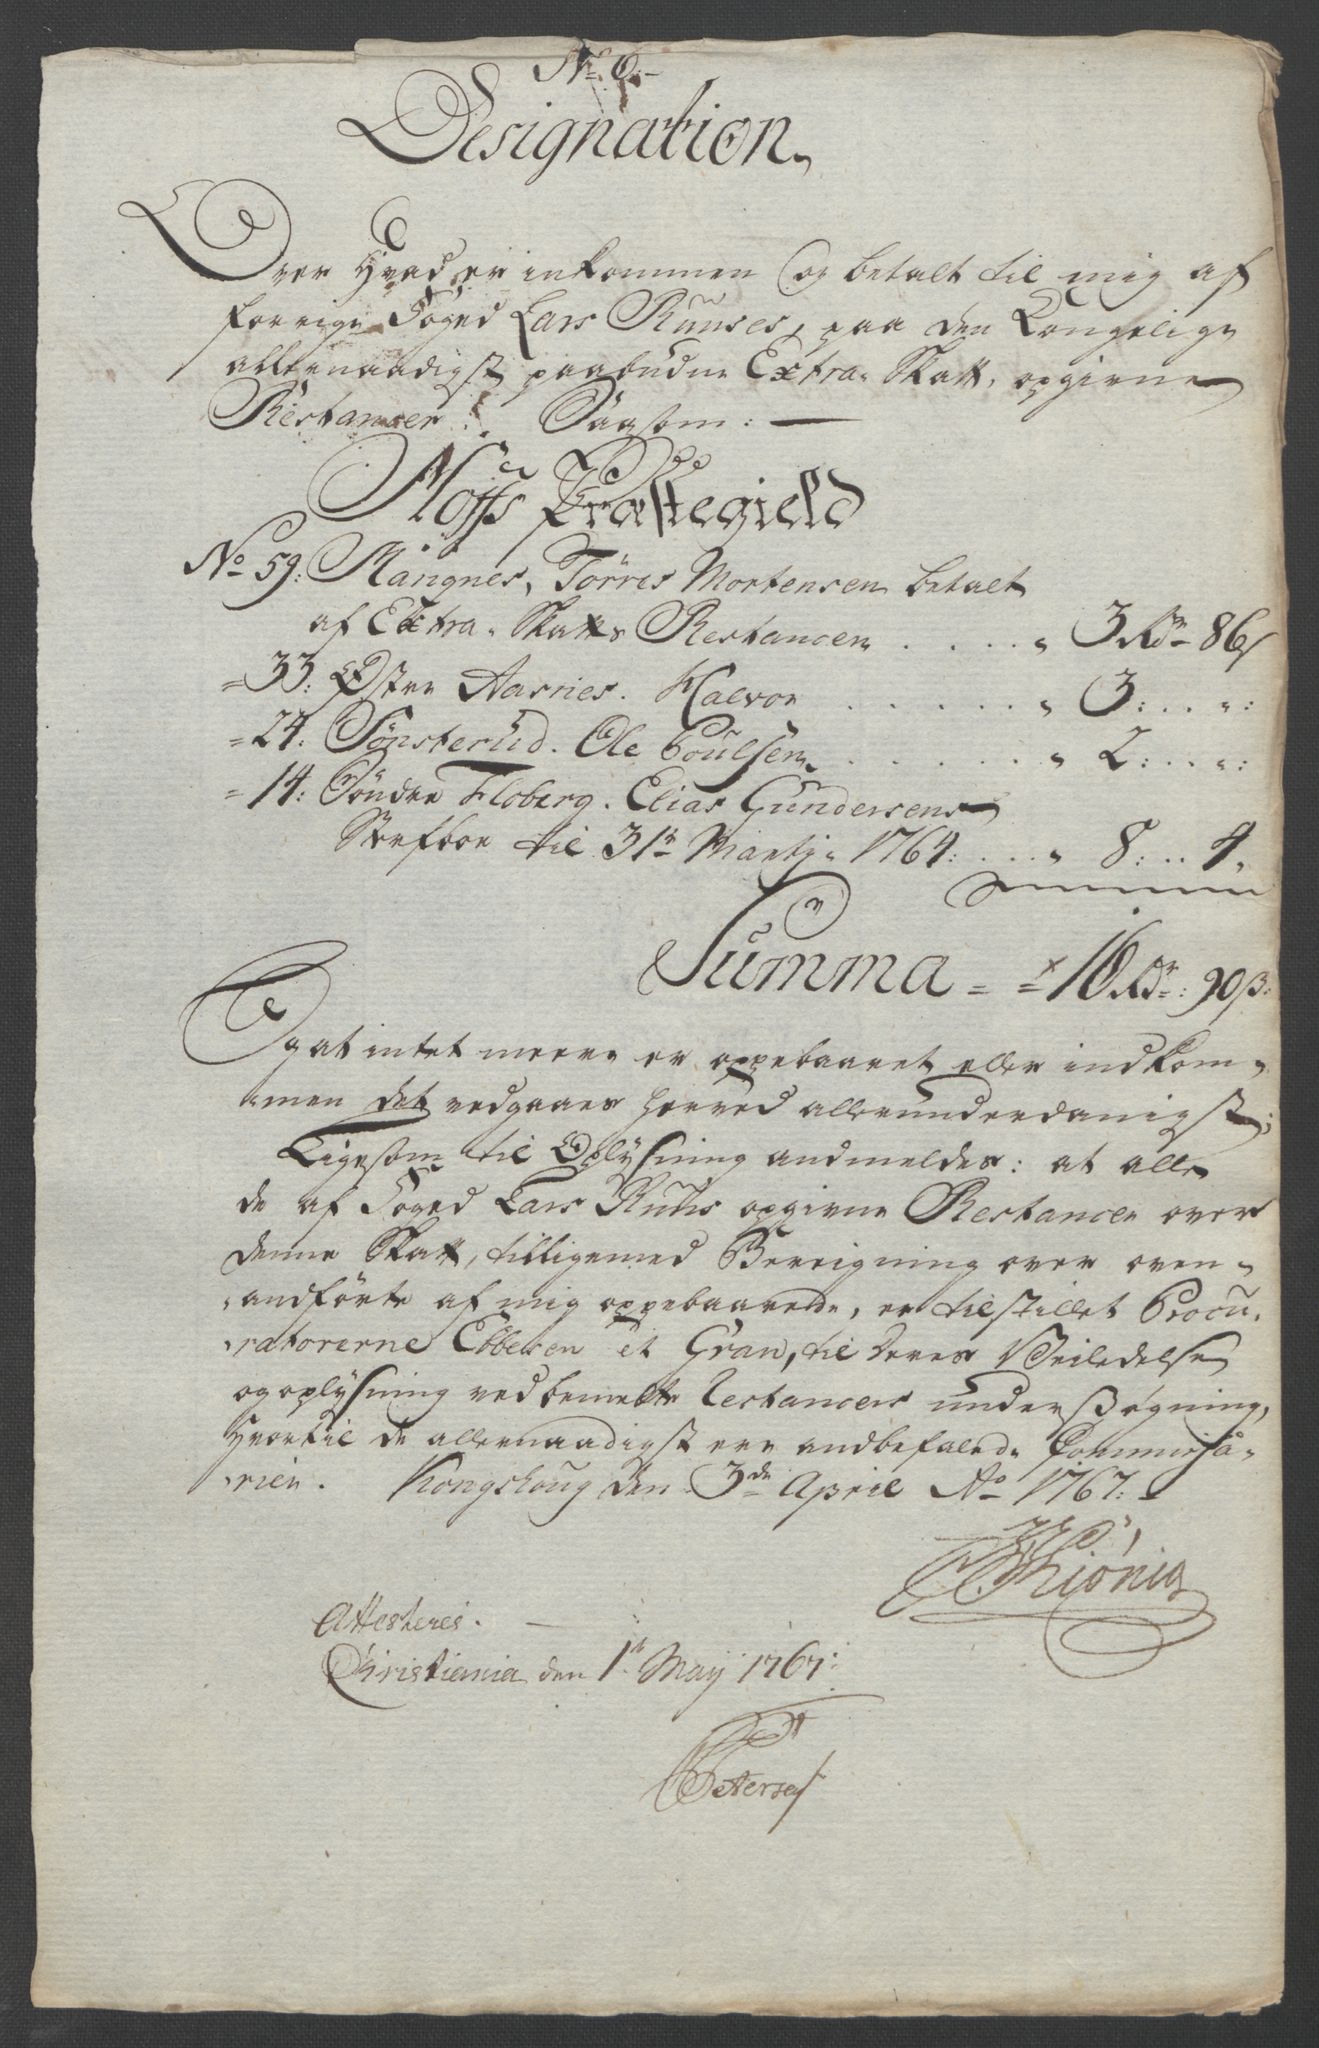 No 6.
Designation.
Over Hvad er inkommen Og betalt til mig af
forrige Foged Lars Ruuses, paa den Kongelige
allernaadigst paabudne Extra Skatt, opgivne
Restancer. Saasom:
Hoffs Præstegield
No 59: Mangnes, Törres Mortensen betalt
af Extra Skatts Restancen . . . . " 3 Rdr 86 s
= 33: Østre Aasnes. Halvor . . . . . " 3: . . ":
= 24: Sönsterud. Ole Poulsen . . . . . " 2: . . ":
= 14: Söndre Floberg. Elias Gundersens
Sterfboe til 31te Martij 1764: . . . " 8: . . 4.
Summa = = 16 Rdr: 90 ß:
Og at intet meere er oppebaaret eller indkom-
men det vedgaaes herved allerunderdanigst;
Ligesom til Oplysning andmeldes: at alle
de af Foged Lars Ruus opgivne Restancer over
denne Skatt, tilligemed Bereigning over oven-
andförte af mig oppebaarede, er tilstillet Procu-
ratorerne Ebbesen et Gran, til deres Veiledelse
og oplysning ved bemelte Restancers undersøgning,
Hvortil de allernaadigst ere andbefalede Commissa-
rier. Kongshoug den 3de April Ao 1767:
Hiönig
Attesteres.
Christiania den 1te Maij 1767:
Petersen